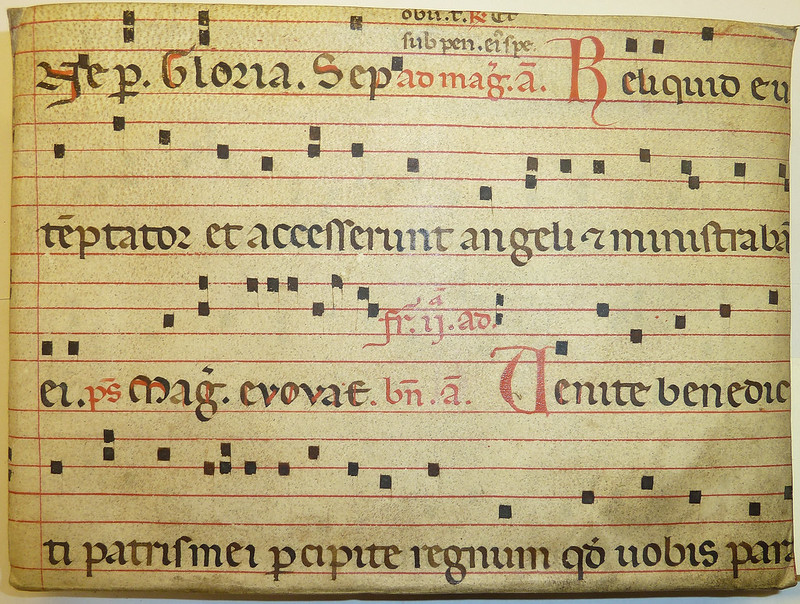 sub pen. ei spe.
p. Gloria. Sep ad mag̃. ã. Reliquid eu
tēptator et accesserunt angeli ⁊ ministrabā
ei. ps̄ Mag̃. evovae. bñ. ã. Venite benedic
fr̃. ij. ad
ti patris mei pcipite regnum qđ uobis para